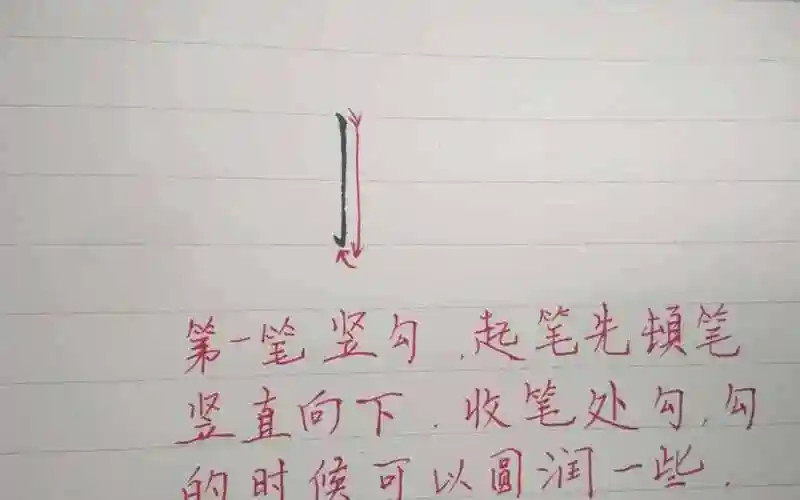 第一笔竖勾.起笔先頓笔
竖直向下.收笔处勾,勾
的时候可以圓润一些.